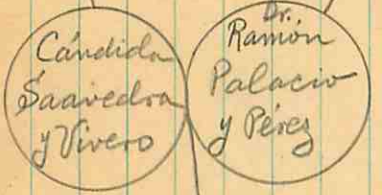 Cándida
Saavedra
y Vivero
Dr.
Ramón
Palacio
y Pérez